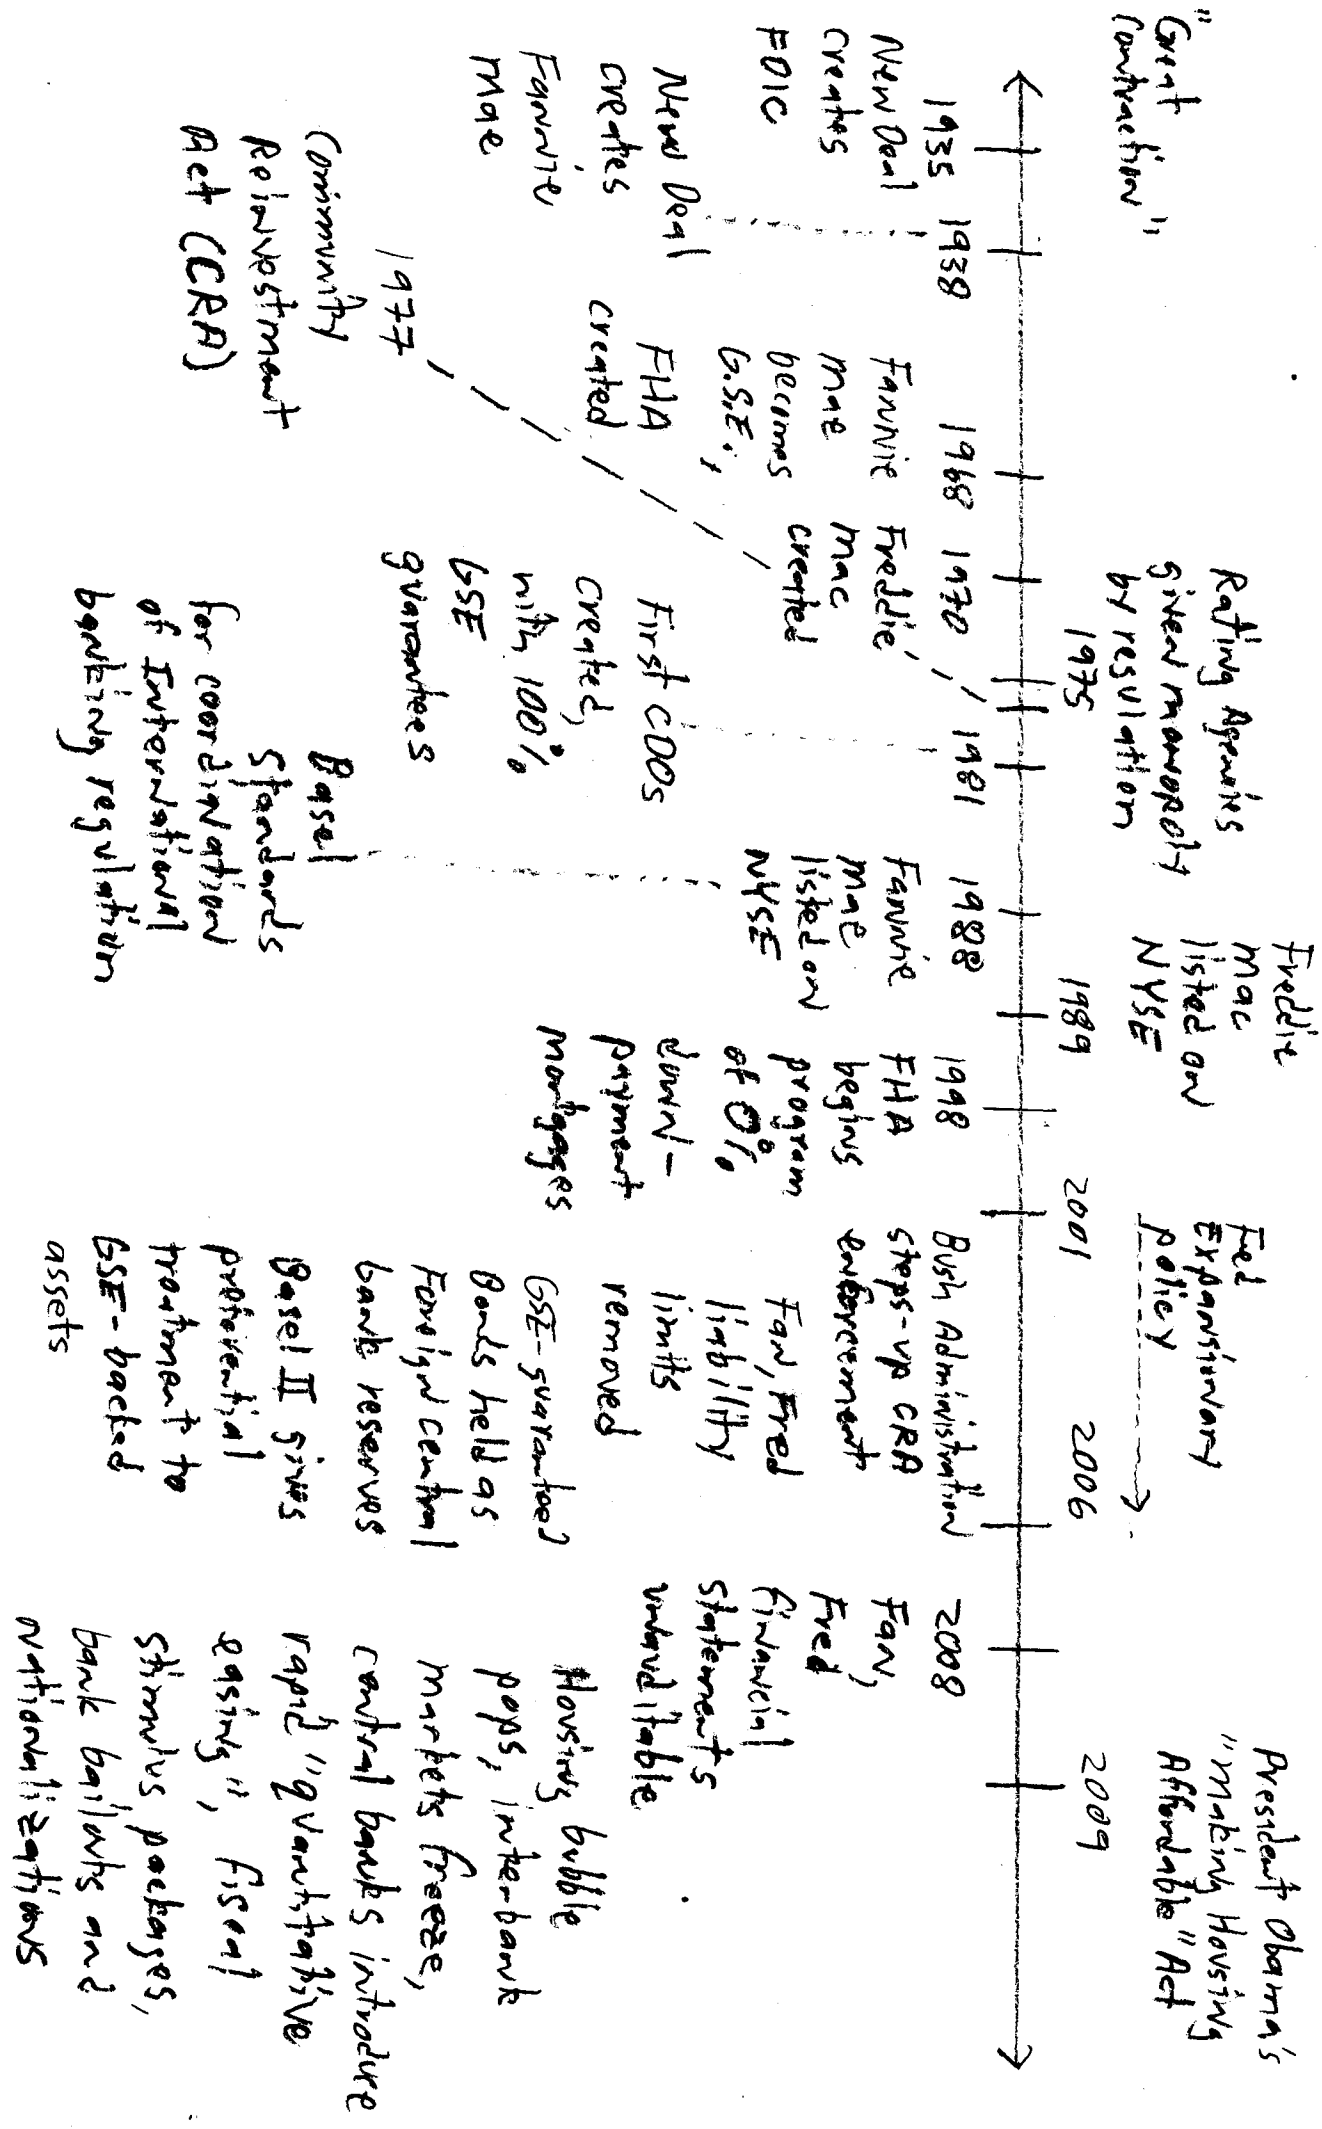 "Great
Contraction",
1935
New Deal
creates
FDIC
1938
New Deal
creates
Fannie
Mae
1968
Fannie
Mae
becomes
G.S.E.,
FHA
created
1970
Freddie
Mac
created
Rating Agencies
given monopoly
by regulation
1975
1977
Community
Reinvestment
Act (CRA)
1981
First CDOs
created,
with 100%
GSE
guarantees
1988
Fannie
Mae
listed on
NYSE
Basel
Standards
for coordination
of International
banking regulation
Freddie
Mac
listed on
NYSE
1989
1998
FHA
begins
program
of 0%
down-
payment
mortgages
Fed
Expansionary
policy
2001
2006
Bush Administration
steps-up CRA
enforcement
Fan, Fred
liability
limits
removed
GSE-guaranteed
Bonds held as
Foreign central
bank reserves
Basel II gives
preferential
treatment to
GSE-backed
assets
2008
Fan,
Fred
financial
statements
unauditable
Housing bubble
pops, inter-bank
markets freeze,
central banks introduce
rapid "quantitative
easing", fiscal
stimulus packages,
bank bailouts and
nationalizations
President Obama's
"Making Housing
Affordable" Act
2009